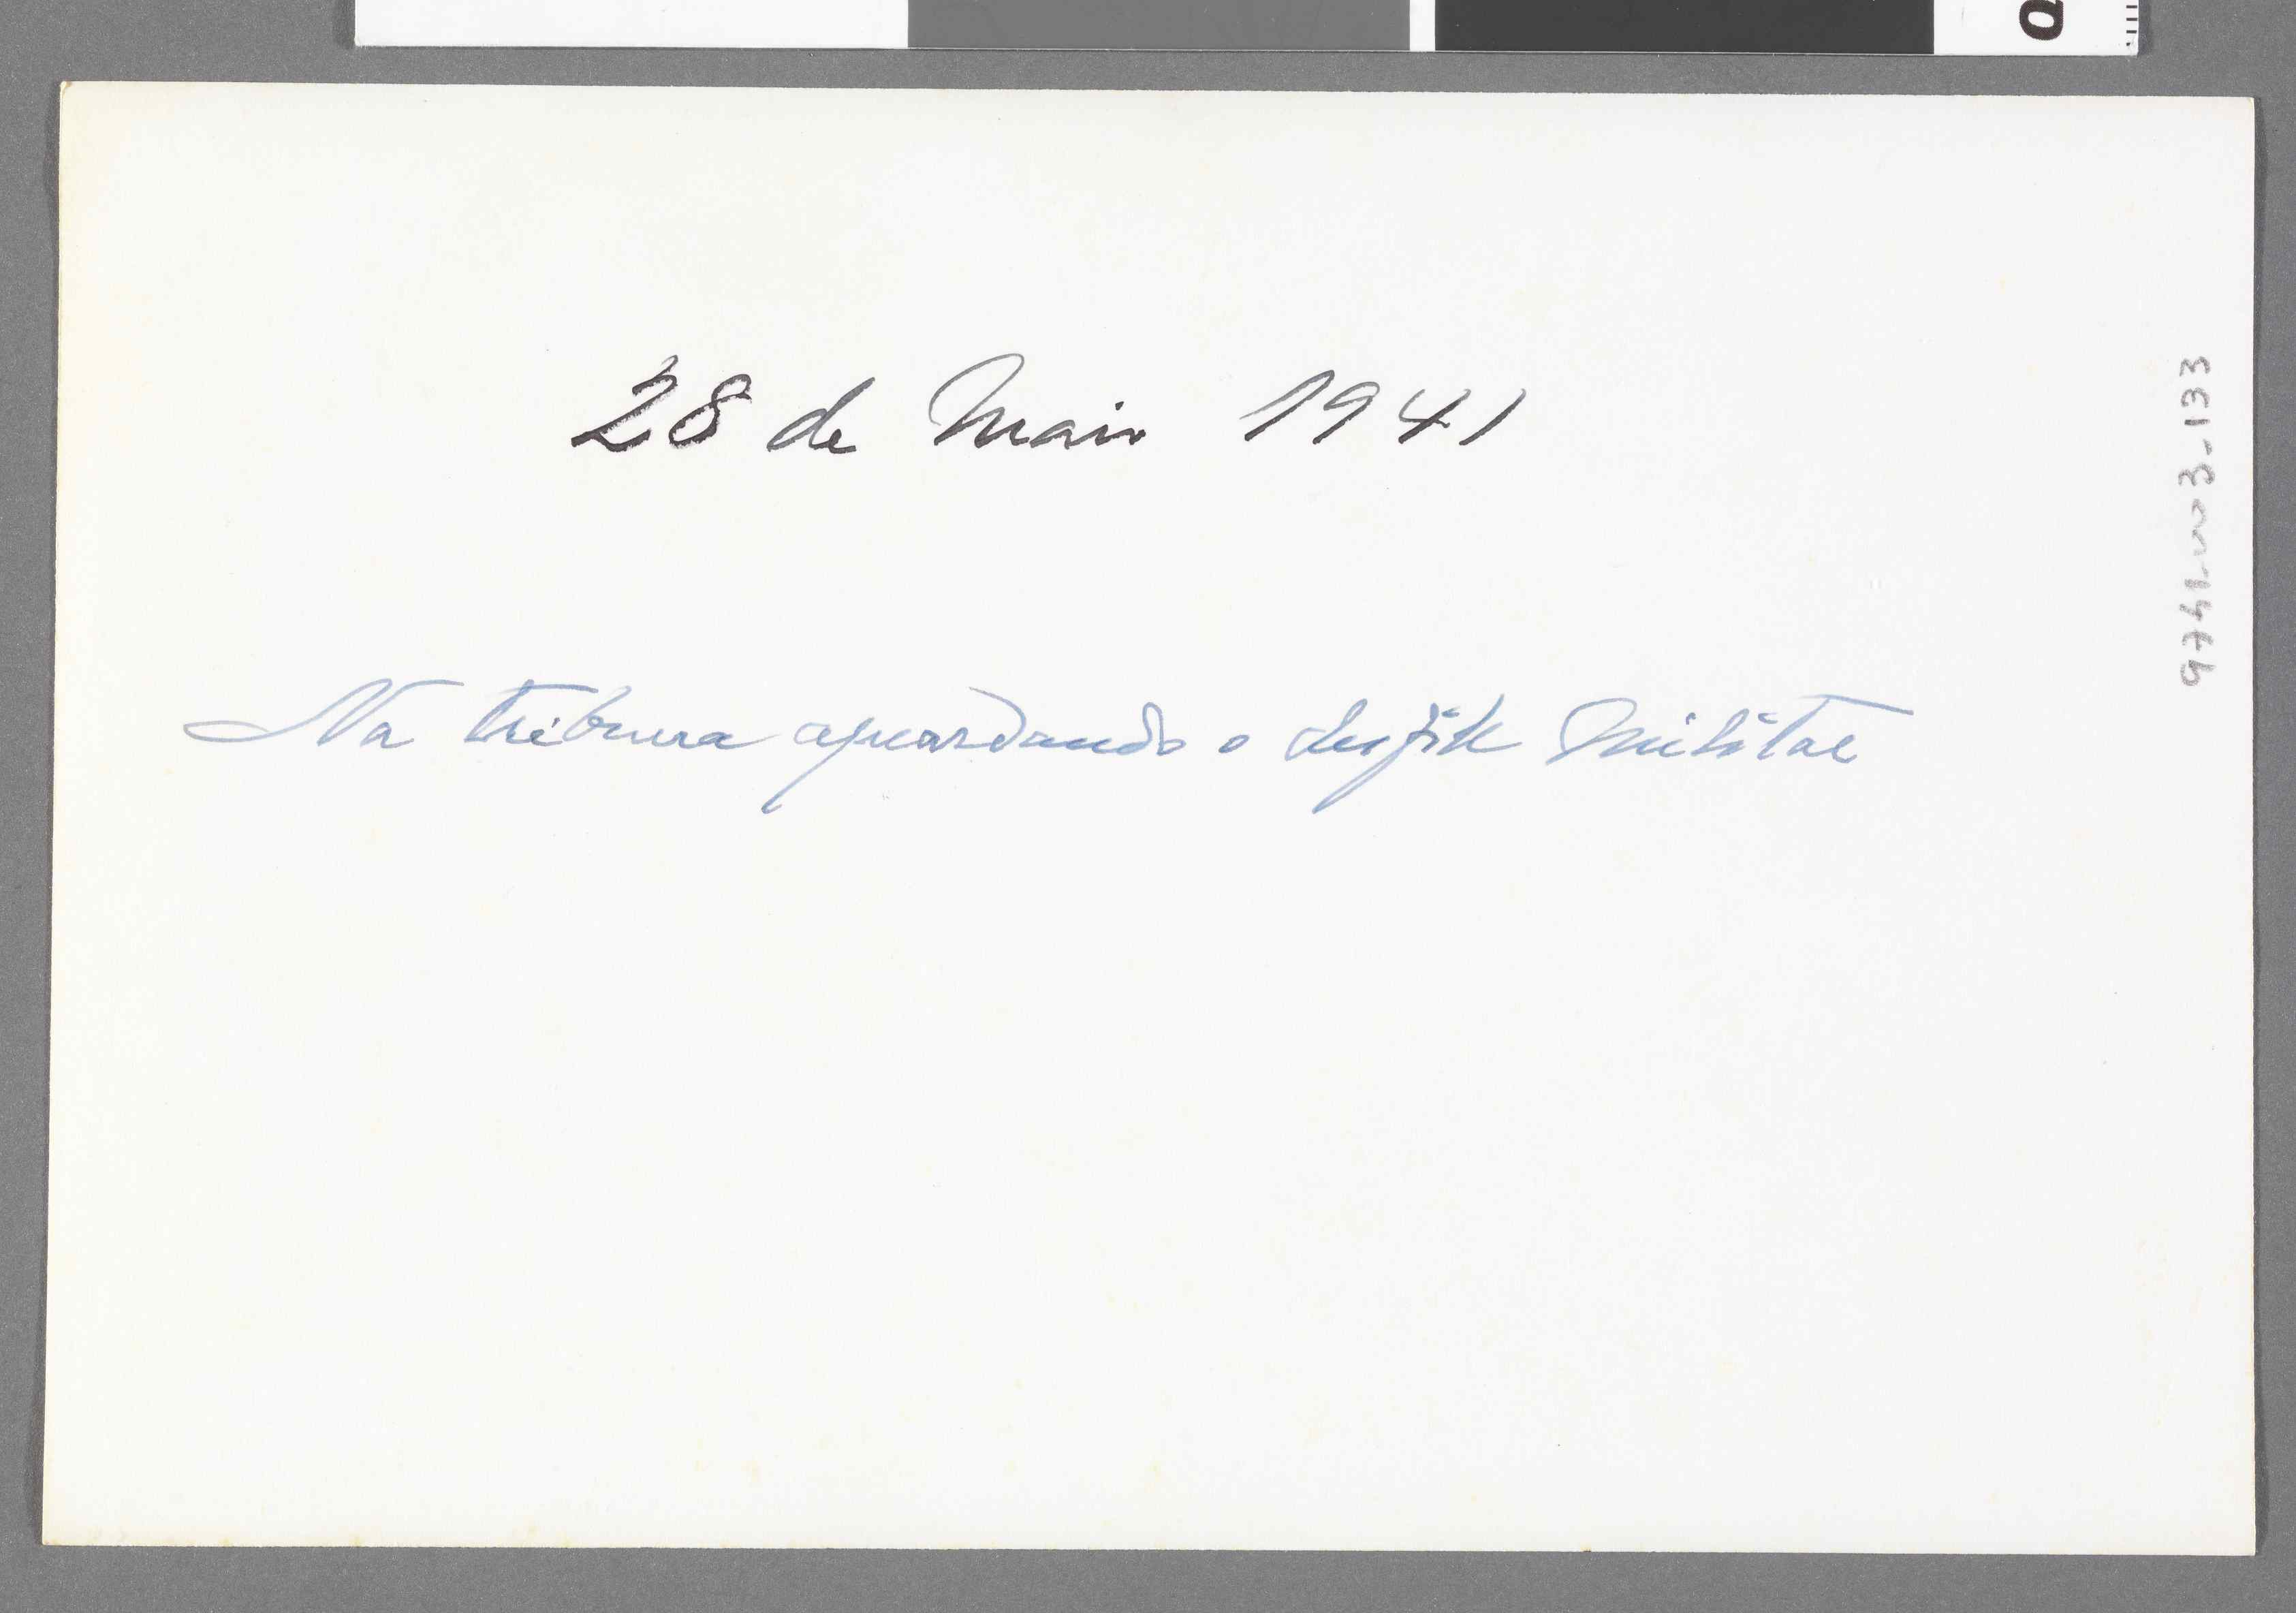 28 de Maio 1941
Na tribuna aguardando o desfile Militar
9741_003_133